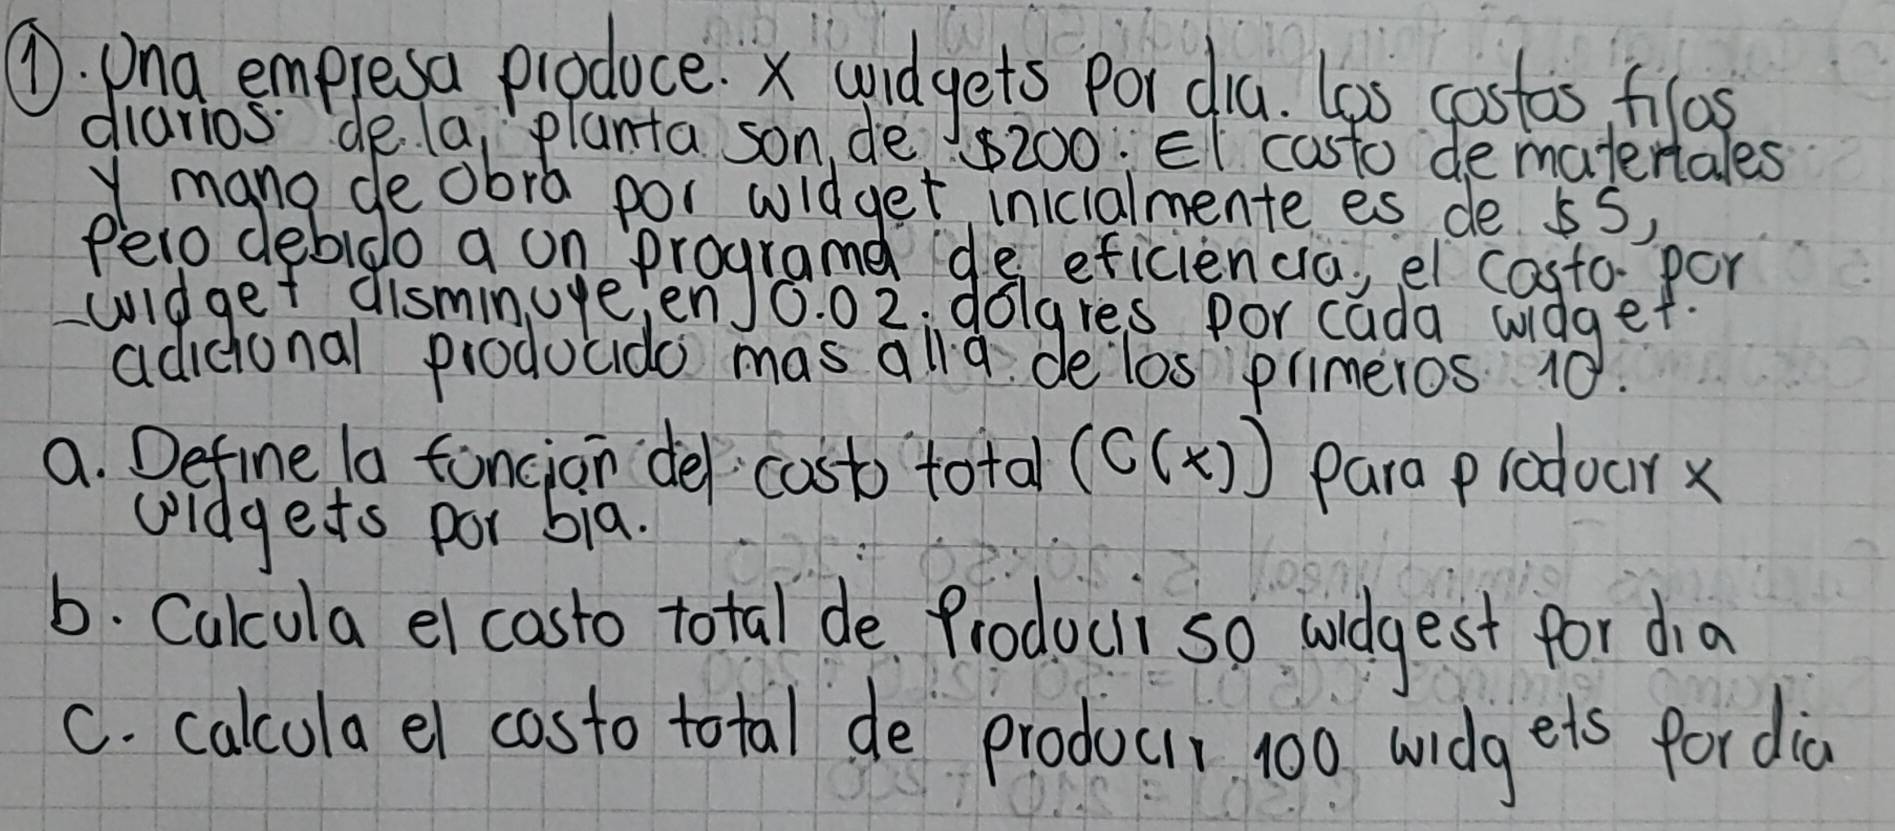 ①. Una empresa produce. x widgets por dia. Los costos fijos
diarios de la planta son de $200. El costo de materiales
y mano de obra por widget inicialmente es de $5,
Pero debido a un programa de eficiencia, el costo por
widget disminuye en 0.02 dolares por cada widget
adicional producido mas alla de los primeros 10.
a. Define la función del costo total (C(x)) para producir x
widgets por bia.
b. Calcula el costo total de Producir 50 widgest por dia
c. calcula el costo total de producir 100 widgets por dia